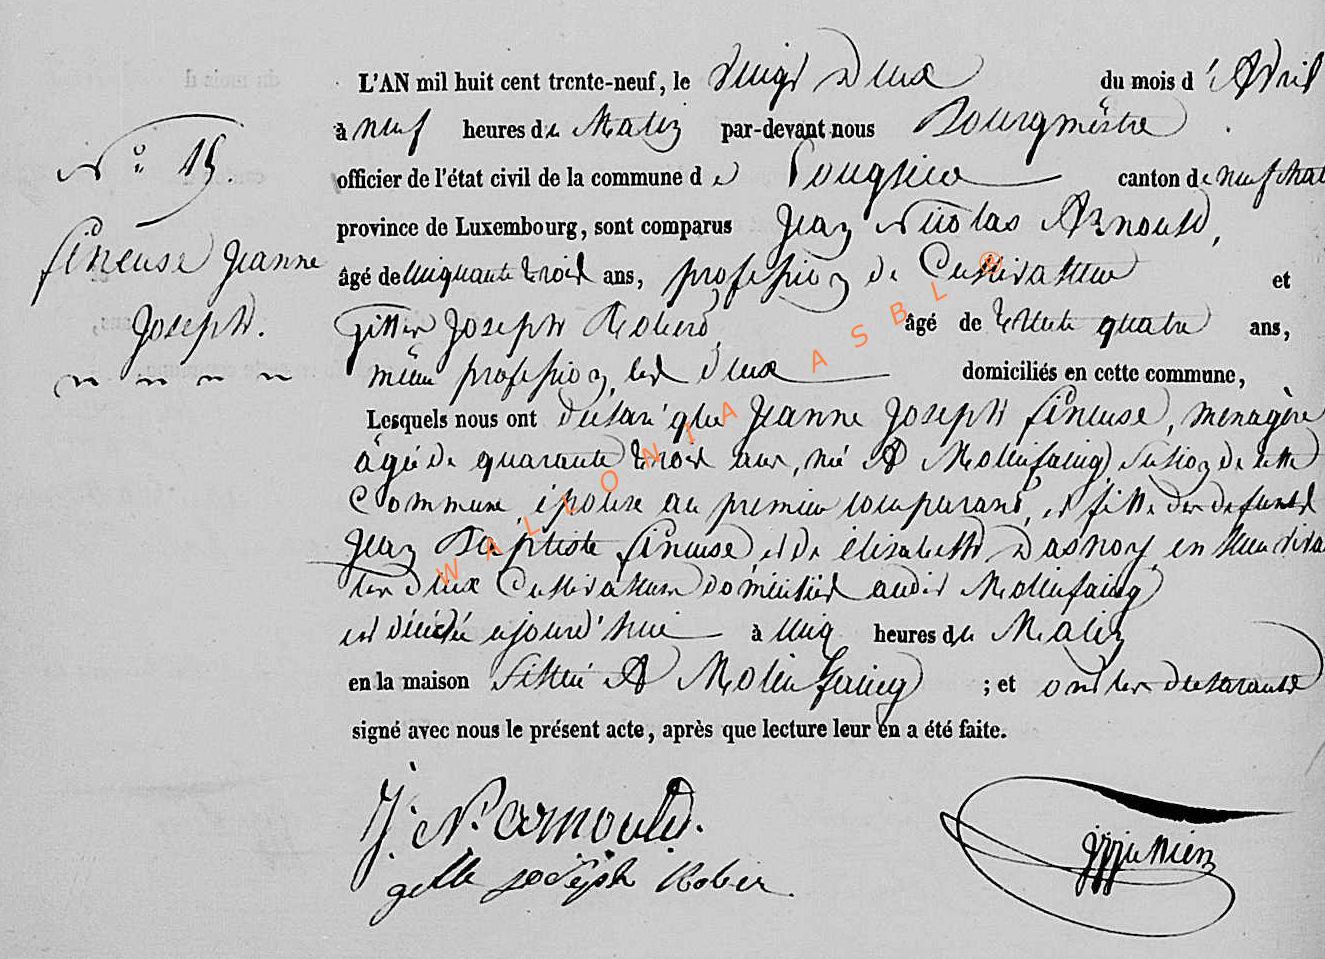 L'AN mil huit cent trente-neuf, le vingt Deux du mois d'Avril
à neuf heures du Matin par-devant nous Bourgmestre
officier de l'état civil de la commune de canton de neufchat
province de Luxembourg, sont comparus Jean Nicolas Arnould,
âgé de cinquante trois ans, profession de Cultivateur et
Joseph âgé de trente quatre ans,
même profession, les deux domiciliés en cette commune,
Lesquels nous ont déclaré que Jeanne Joseph fineuse, menagère
âgée de quarante trois ans, né A Molinfaing, section de cette
Commune, épouse au premier comparant, et fille des defunts
Jean Baptiste fineuse, et de élizabeth en leur viva
les deux Cultivateurs domiciliés audit Molinfaing
est décédée ajourd'hui à cinq heures du Matin
en la maison située A Molinfaing ; et ont les déclarants
signé avec nous le présent acte, après que lecture leur en a été faite.
N° 15.
fineuse Jeanne
Joseph.
J. N. arnould.
joseph
WALLONIA ASBL ®